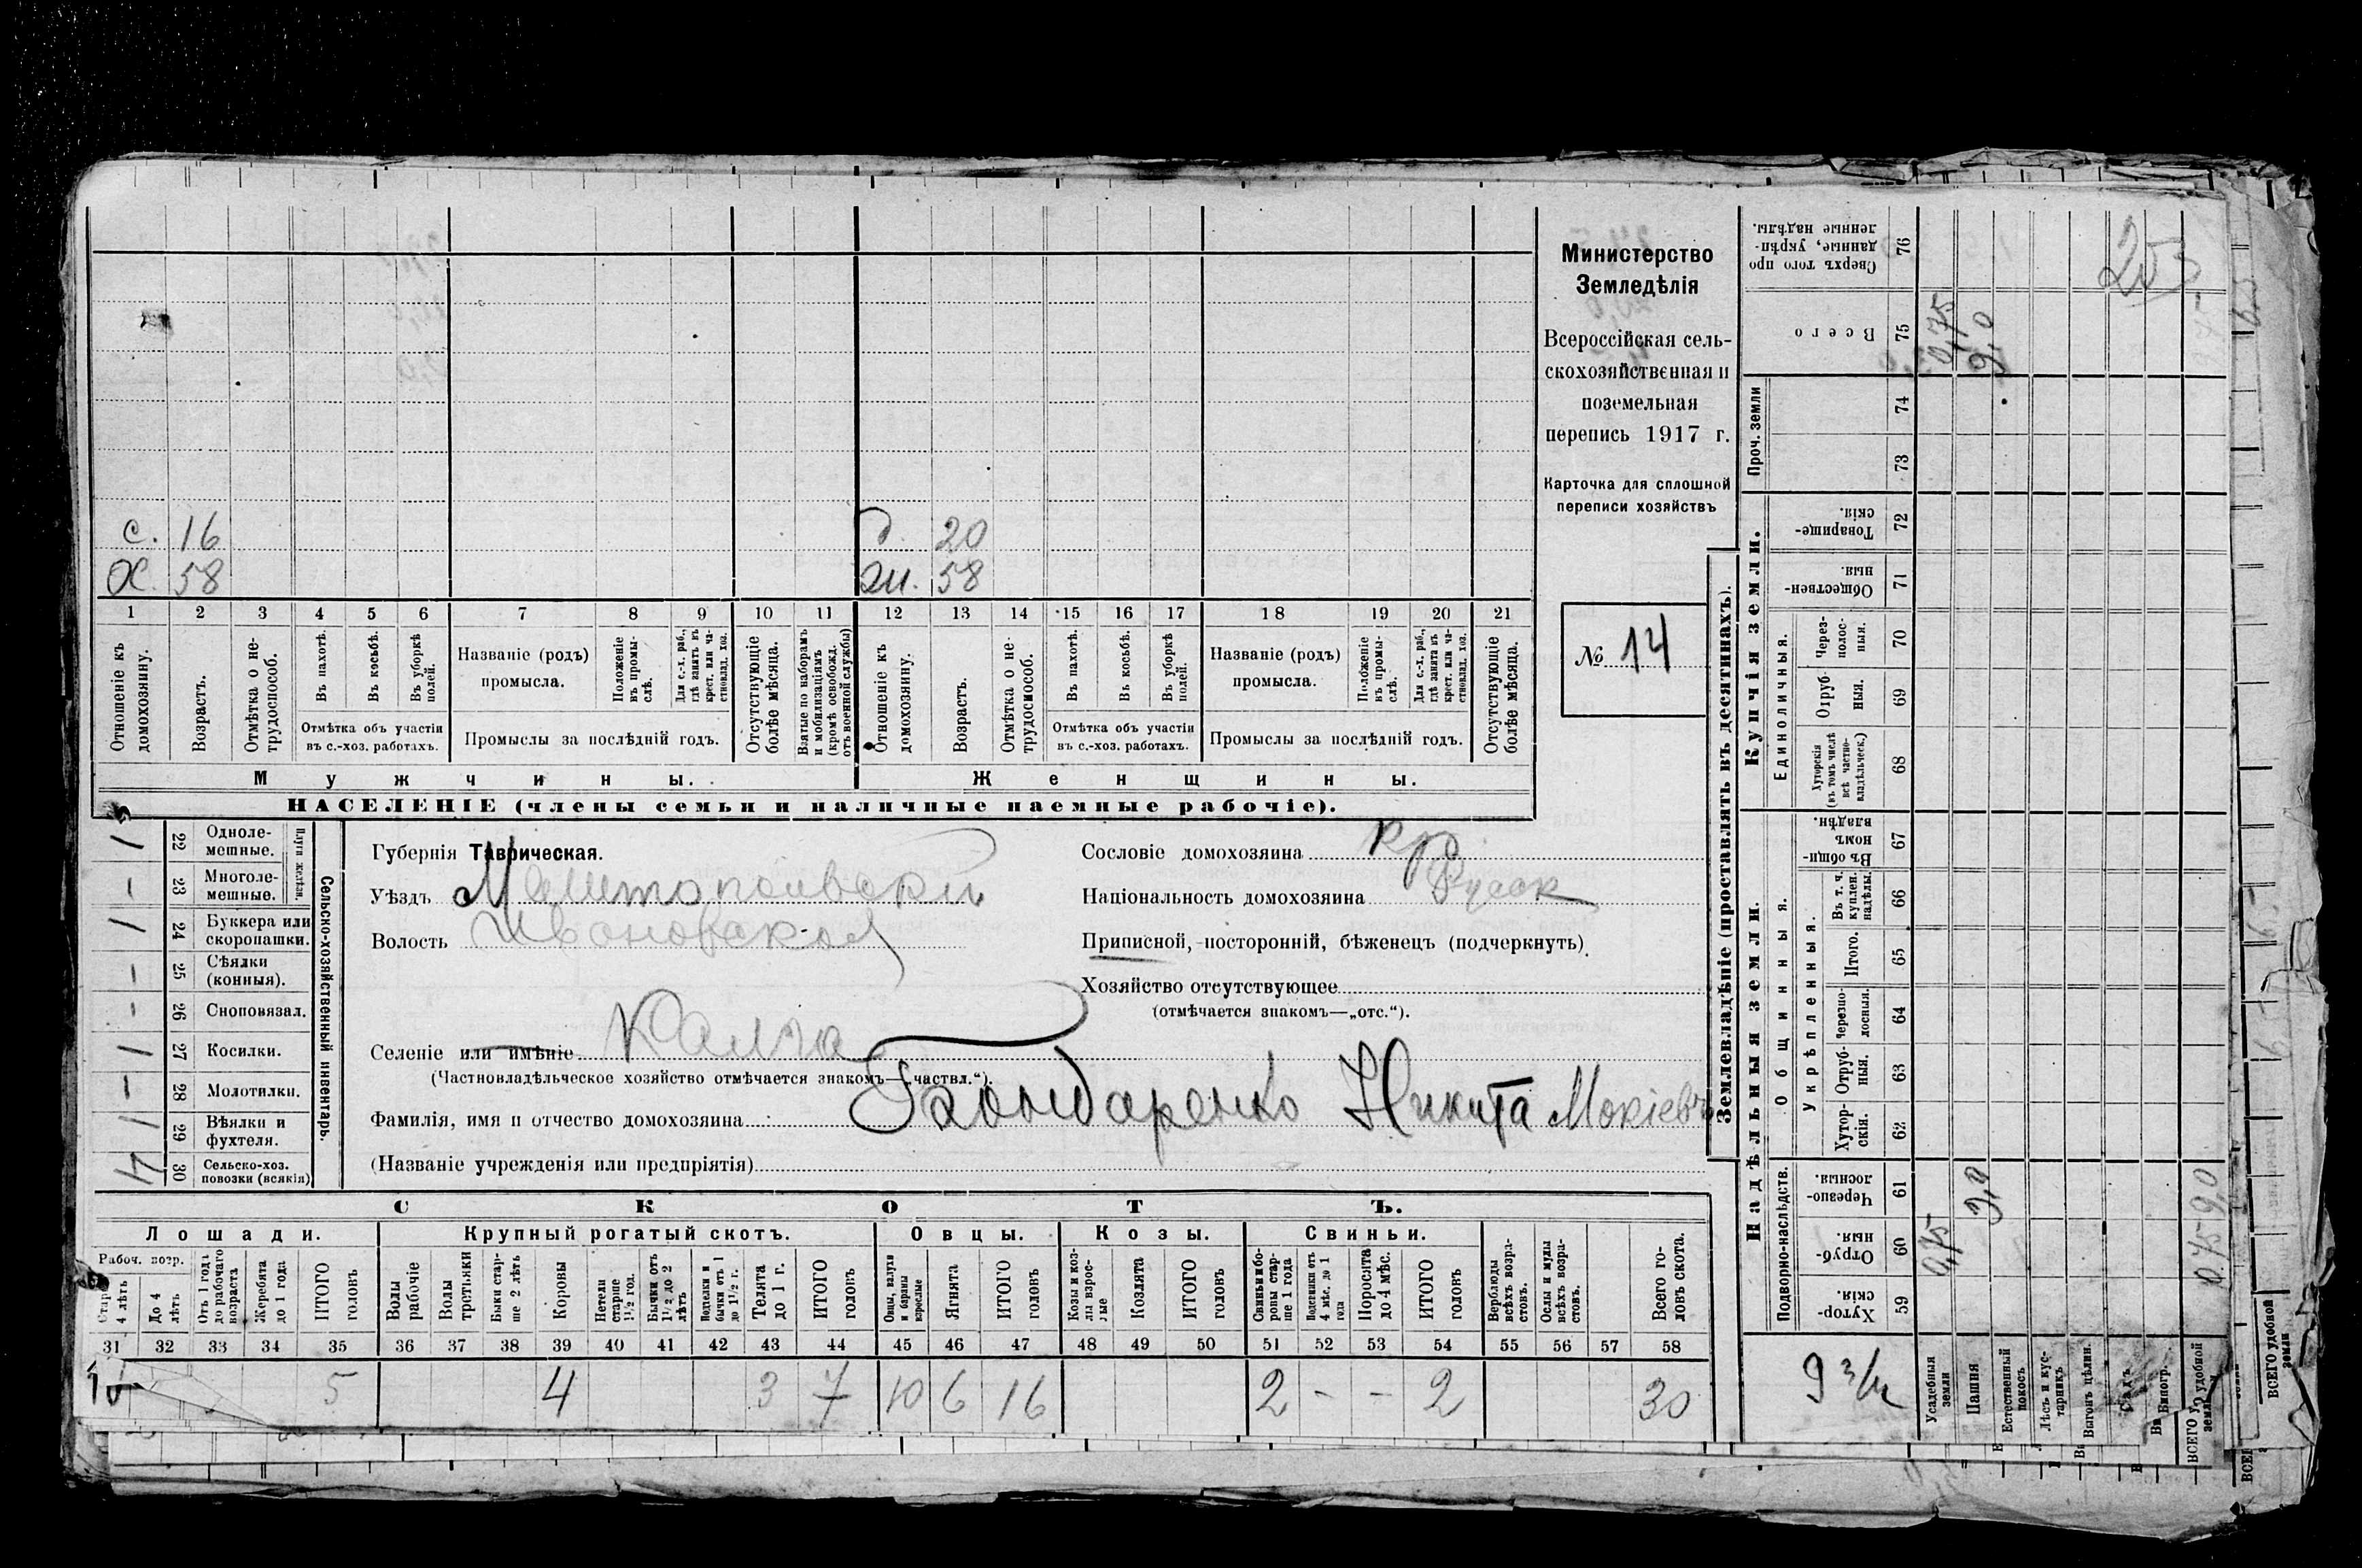 253
Министерство
Земледѣлія
Всероссійская сель-
скохозяйственная и
поземельная
перепись 1917 г.
Карточка для сплошной
переписи хозяйствъ
№ 14
с. 16 д. 20
Х. 58 Ж. 58
1 2 3 4 5 6 7 8 9 10 11 12 13 14 15 16 17 18 19 20 21
Отношеніе къ домохозяину.
Возрастъ.
Отмѣтка о не-трудоспособ.
Въ пахотѣ.
Въ косьбѣ.
Въ уборкѣ полей.
Отмѣтка объ участіи
въ с.-хоз. работахъ.
Названіе (родъ)
промысла.
Положеніе въ промы-слѣ.
Для с.-х. раб., гдѣ занятъ въ крест. или ча-стновлад. хоз.
Промыслы за послѣдній годъ.
Отсутствующіе болѣе мѣсяца.
Взятые по наборамъ и мобилизаціямъ (кромѣ освобожд. отъ военной службы)
Отношеніе къ домохозяину.
Возрастъ.
Отмѣтка о не-трудоспособ.
Въ пахотѣ.
Въ косьбѣ.
Въ уборкѣ полей.
Отмѣтка объ участіи
въ с.-хоз. работахъ.
Названіе (родъ)
промысла.
Положеніе въ промы-слѣ.
Для с.-х. раб., гдѣ занята въ крест. или ча-стновлад. хоз.
Промыслы за послѣдній годъ.
Отсутствующіе болѣе мѣсяца.
Мужчины. Женщины.
НАСЕЛЕНІЕ (члены семьи и наличные наемные рабочіе).
Сельско-хозяйственный инвентарь.
Плуги желѣзн.
1 22 Одноле-мешные.
- 23 Многоле-мешные.
1 24 Буккера или скоропашки.
- 25 Сѣялки (конныя).
- 26 Сноповязал.
1 27 Косилки.
- 28 Молотилки.
1 29 Вѣялки и фухтеля.
30 Сельско-хоз. повозки (всякія)
Губернія Таврическая.
Уѣздъ Мелитопольскій
Волость Ивановская
Селеніе или имѣніе Калга
(Частновладѣльческое хозяйство отмѣчается знакомъ—„частвл.“).
Фамилія, имя и отчество домохозяина Бондаренко Никита Мокіев
(Названіе учрежденія или предпріятія)
Сословіе домохозяина кр
Національность домохозяина Русск
Приписной, посторонній, бѣженецъ (подчеркнуть).
Хозяйство отсутствующее
(отмѣчается знакомъ—„отс.“).
СКОТЪ.
Лошади. Крупный рогатый скотъ. Овцы. Козы. Свиньи.
Рабоч. возр.
4 лѣтъ
До 4 лѣтъ
Отъ 1 года до рабочаго возраста
Жеребята до 1 года
ИТОГО головъ
Волы рабочіе
Волы третьяки
Быки стар-ше 2 лѣтъ
Коровы
Нетели старше 1½ год.
Бычки отъ 1½ до 2 лѣтъ
Подтелки и бычки отъ 1 до 1½ г.
Телята до 1 г.
ИТОГО головъ
Овцы, валухи и бараны взрослые
Ягнята
ИТОГО головъ
Козы и коз-лы взрос-лые
Козлята
ИТОГО головъ
Свиньи и бо-ровы стар-ше 1 года
Подсвинки отъ 4 мѣс. до 1 года
Поросята до 4 мѣс.
ИТОГО головъ
Верблюды всѣхъ возра-стовъ.
Ослы и мулы всѣхъ возра-стовъ.
Всего го-ловъ скота.
31 32 33 34 35 36 37 38 39 40 41 42 43 44 45 46 47 48 49 50 51 52 53 54 55 56 57 58
5 4 3 7 10 6 16 2 - - 2 30
Землевладѣніе (проставлять въ десятинахъ).
Надѣльныя земли.
Купчія земли.
Проч. земли
Подворно-наслѣдств.
Общинныя.
Укрѣпленныя.
Единоличныя.
Сверхъ того про данные, укрѣп-ленные надѣлы. 76
Всего 75 0,75 9,0
74
73
Товарище-скія. 72
Обществен-ныя. 71
Через-полос-ныя. 70
Отруб-ныя. 69
Хуторскія (въ томъ числѣ всѣ частно-владѣльческ.) 68
Въ общин-номъ владѣн. 67
Въ т. ч. куплен. надѣлы. 66
Итого. 65
Черезпо-лосныя. 64
Отруб-ныя. 63
Хутор-скія. 62
Черезпо-лосныя. 61 9,0
Отруб-ныя. 60 0,75
Хутор-скія. 59
0.75 9,0
9 3/4
Усадебныя земли
Пашня
Естественный покосъ
Лѣсъ и кус-тарникъ
Выгонъ цѣлин.
Садъ
Виногр.
ВСЕГО удобной земли
ВСЕГО удобной земли